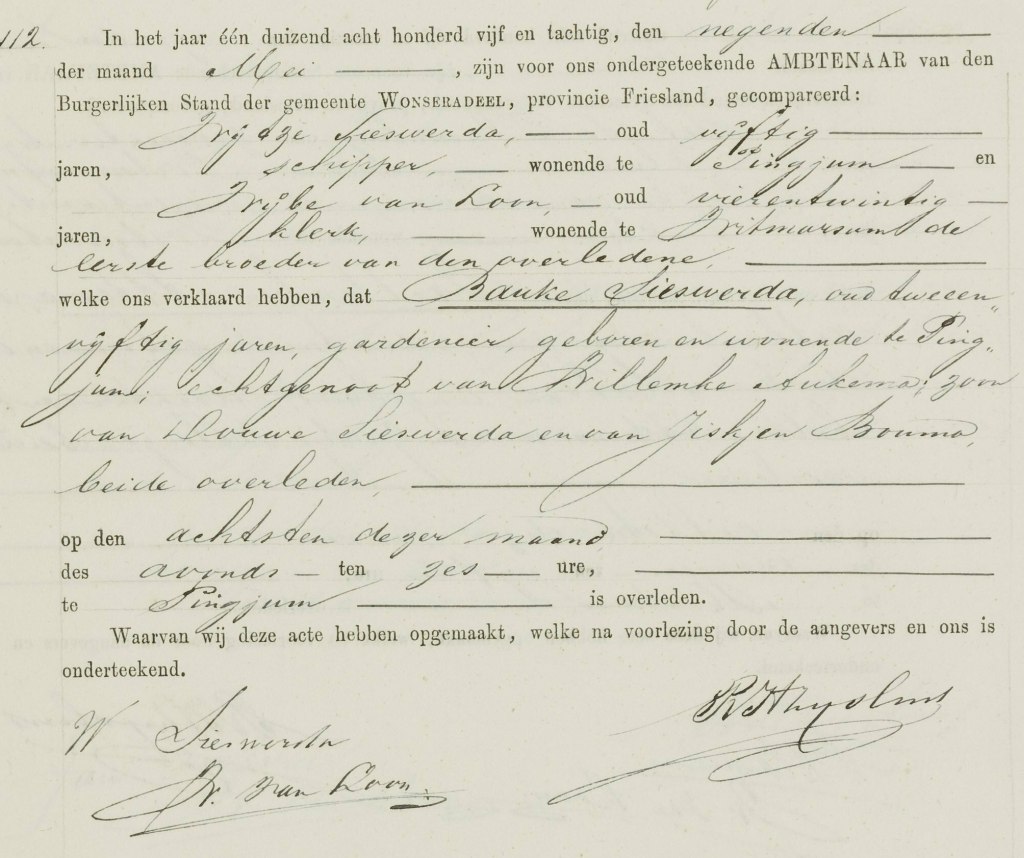 112. In het jaar één duizend acht honderd vijf en tachtig, den negenden
der maand Mei, zijn voor ons ondergeteekende AMBTENAAR van den
Burgerlijken Stand der gemeente WONSERADEEL, provincie Friesland, gecompareerd:
Wijtze Sieswerda, oud vijftig
jaren, schipper, wonende te Pingjum en
Wijbe van Loon, oud vierentwintig
jaren, klerk, wonende te Witmarsum de
eerste broeder van den overledene,
welke ons verklaard hebben, dat Bauke Sieswerda, oud tweeen„
vijftig jaren, gardenier, geboren en wonende te Ping„
jum; echtgenoot van Willemke Aukema; zoon
van Douwe Sieswerda en van Jiskjen Bouma,
beide overleden,
op den achtsten dezer maand
des avonds ten zes ure,
te Pingjum is overleden.
Waarvan wij deze acte hebben opgemaakt, welke na voorlezing door de aangevers en ons is
onderteekend.
W Sieswerda
W. van Loon.